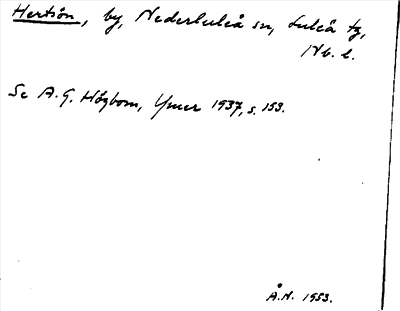 Hertsön, by, Nederluleå sn, Luleå tg,
Nb. l.
Se A. G. Högbom, Ymer 1937, s. 153.
Å.H. 1953.